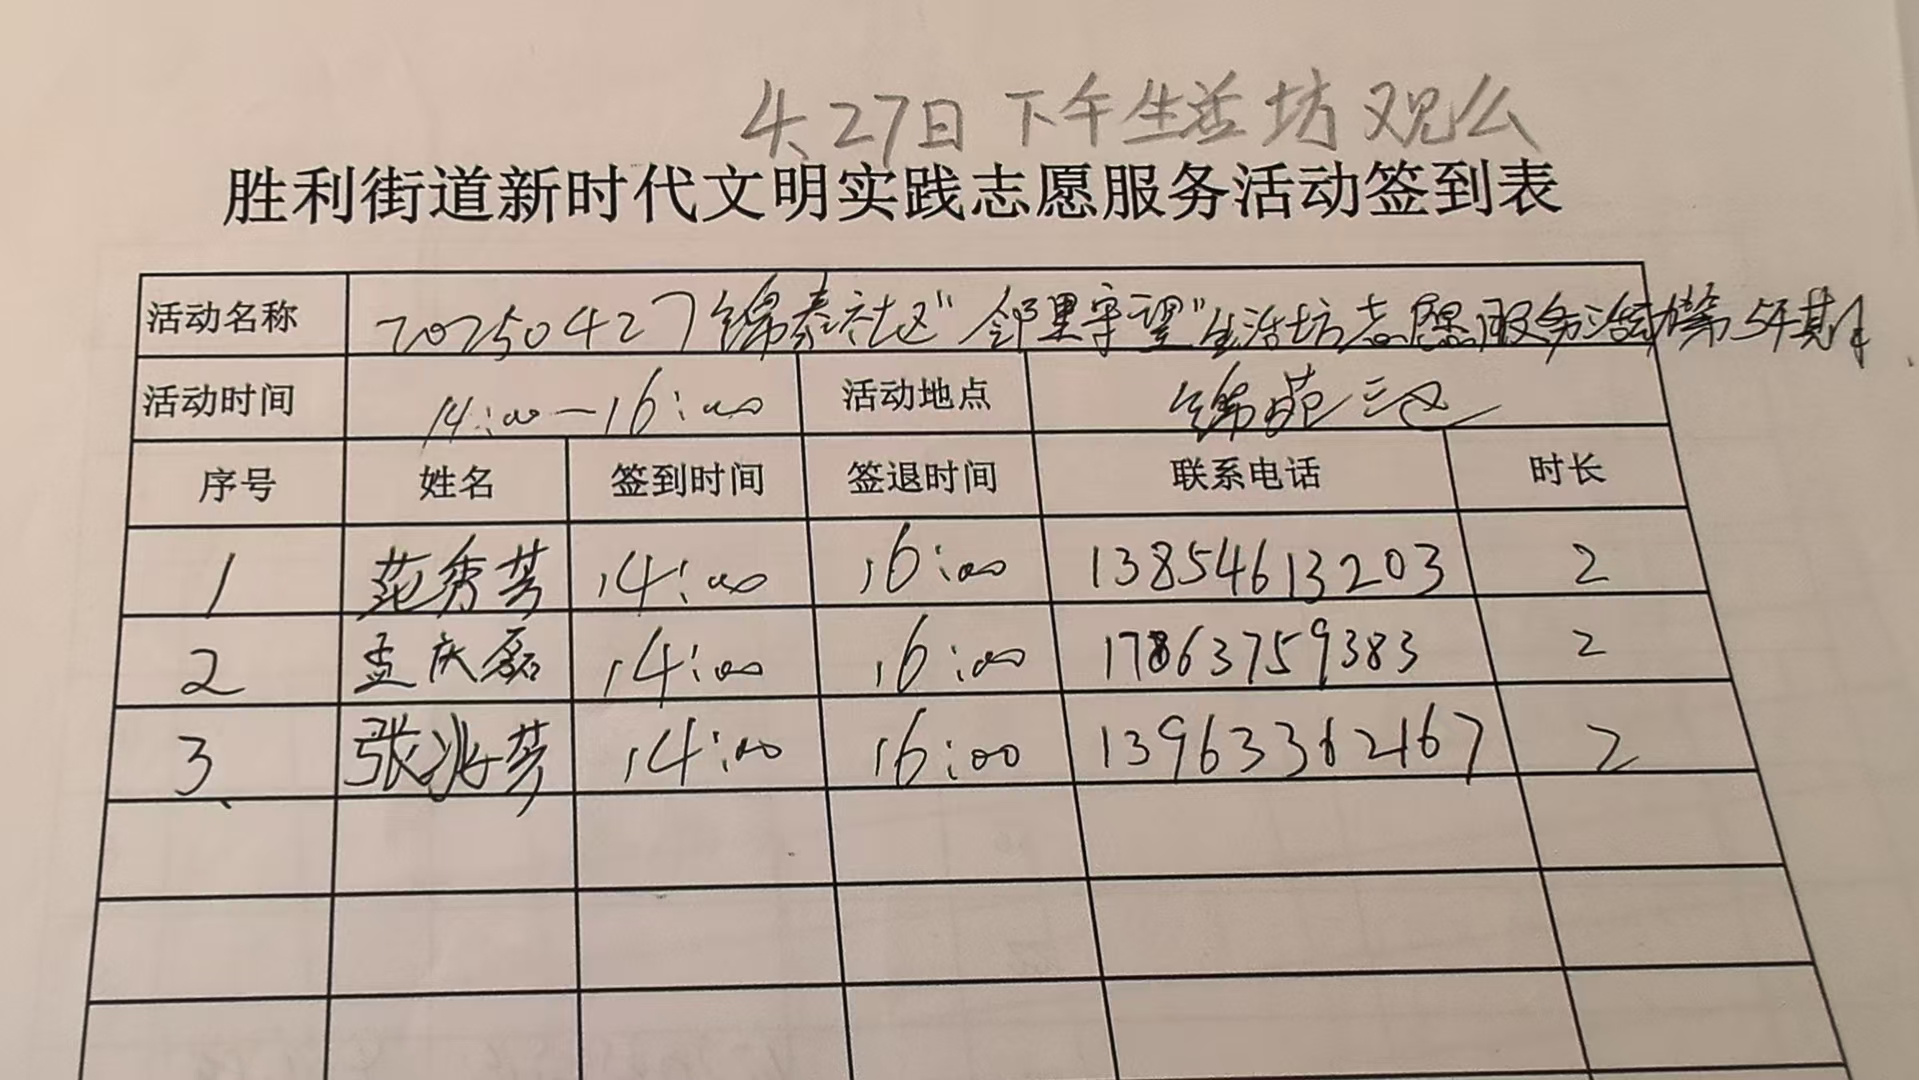 4.27日 下午生活坊 观么
胜利街道新时代文明实践志愿服务活动签到表
活动名称 20250427锦泰社区"邻里守望"生活坊志愿服务活动第5期
活动时间 14:00—16:00 活动地点 锦苑三区
序号 姓名 签到时间 签退时间 联系电话 时长
1 范秀芳 14:00 16:00 13854613203 2
2 孟庆磊 14:00 16:00 17863759383 2
3 张兆芳 14:00 16:00 13963362167 2